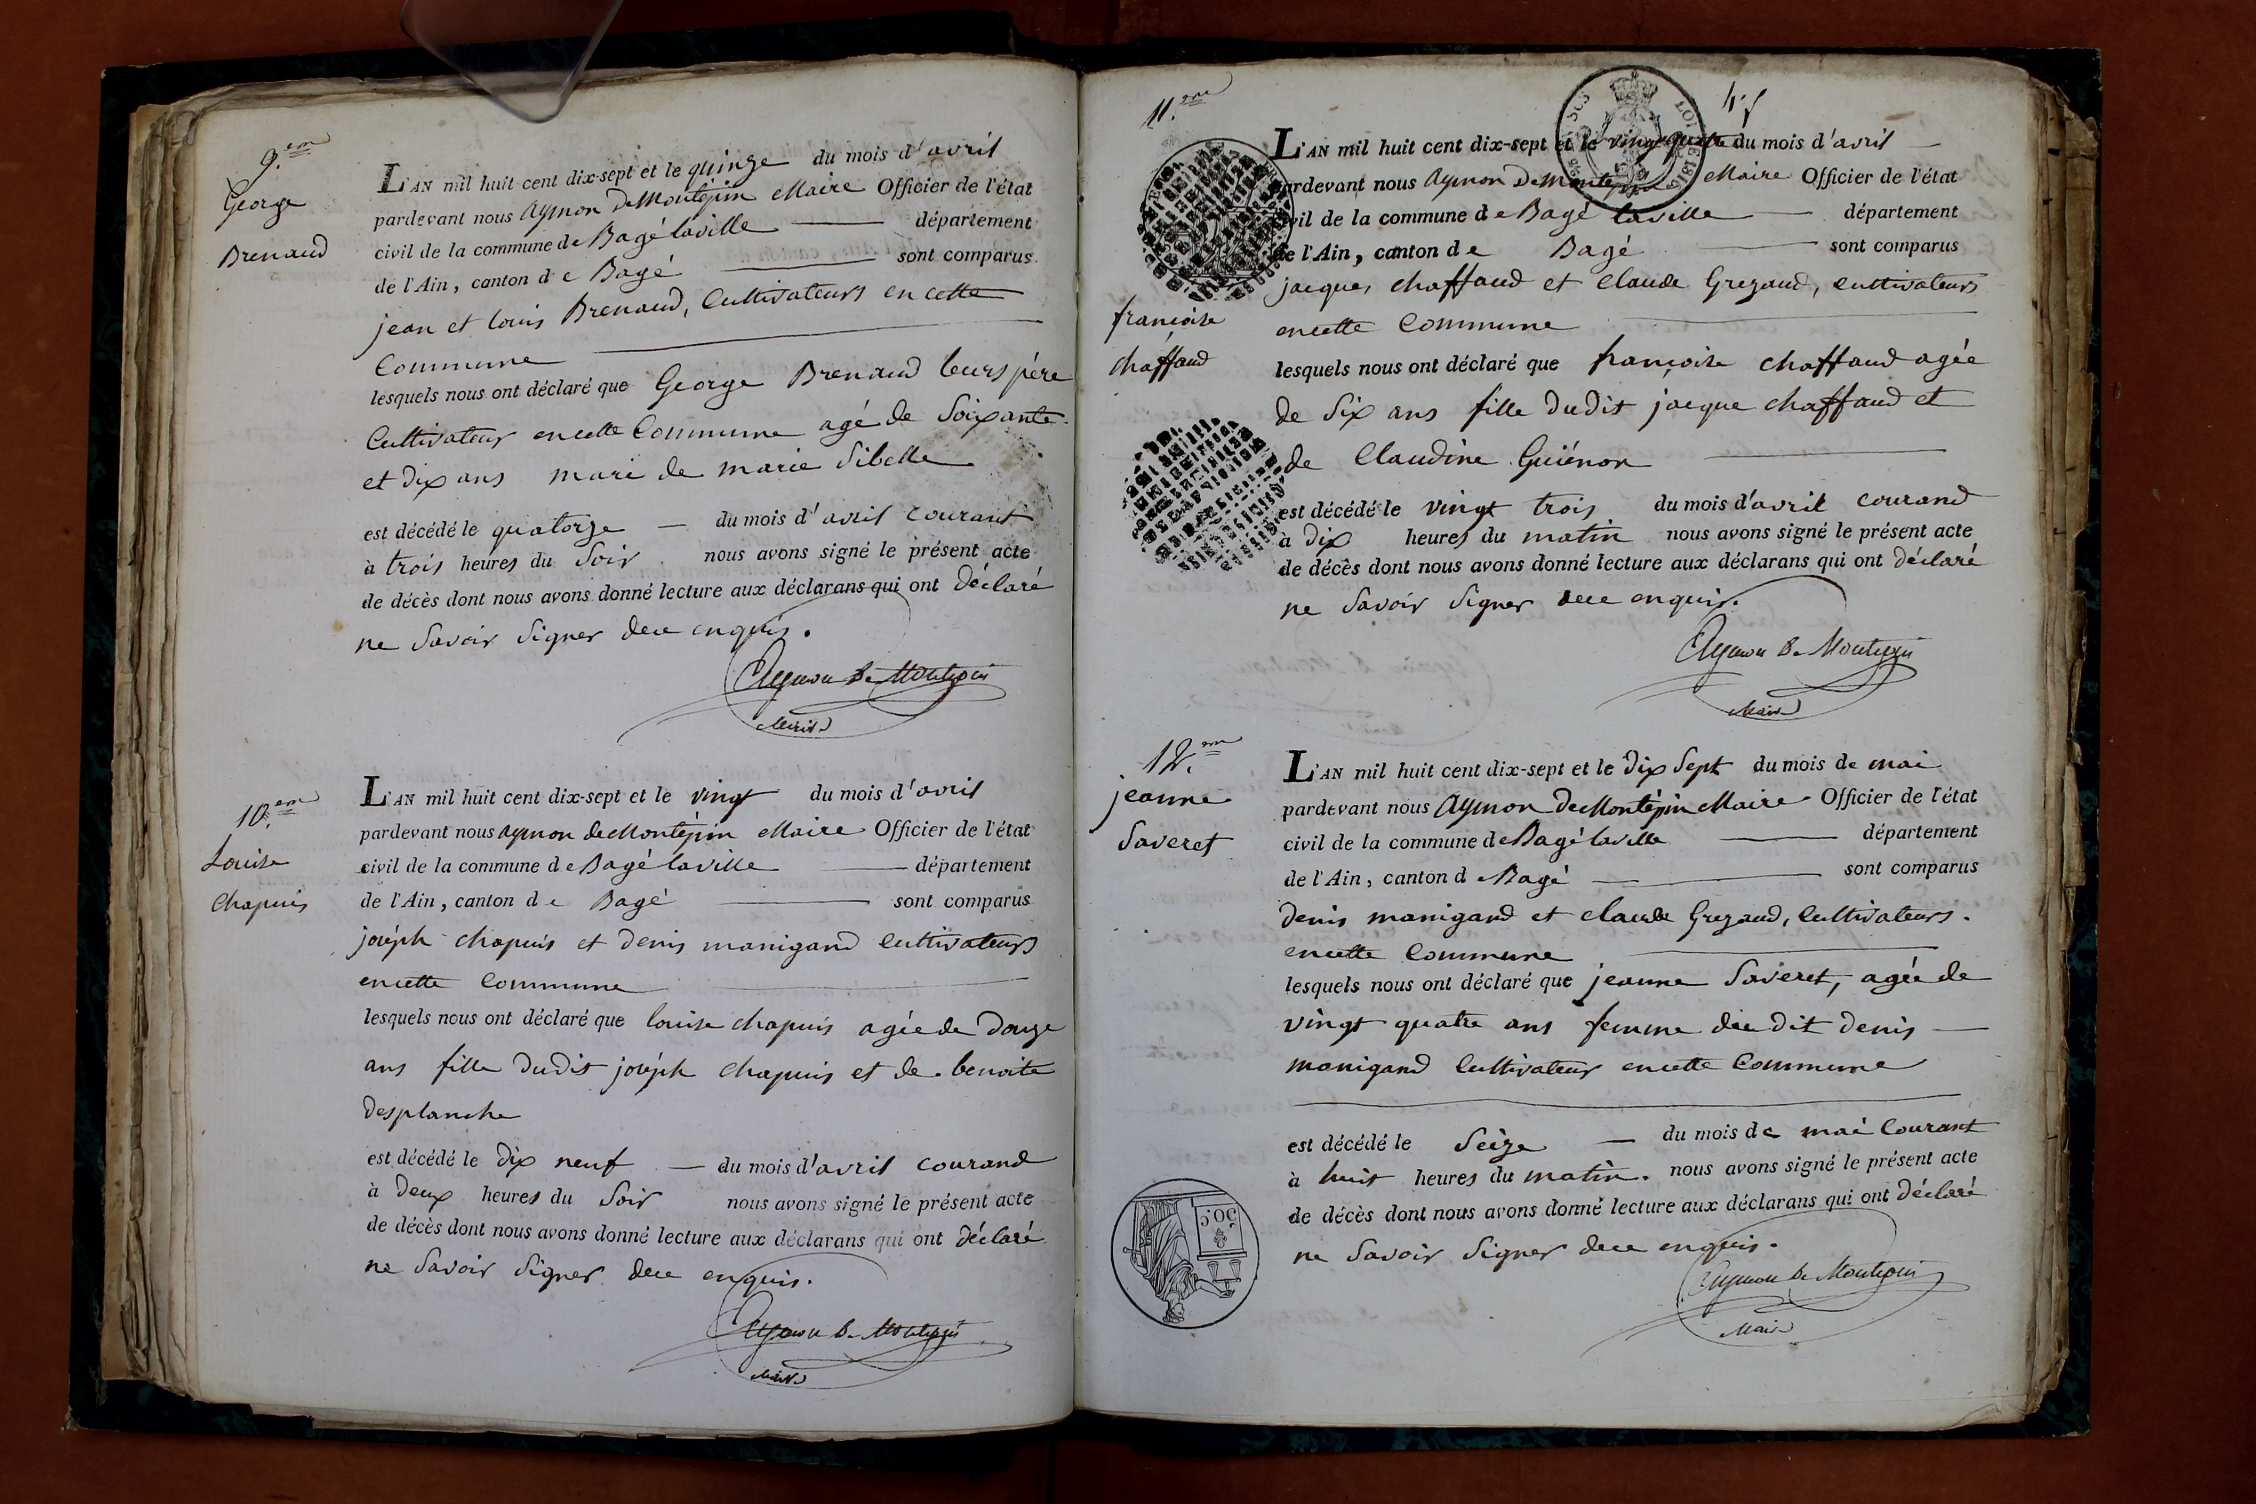 9.em
George
Brenaud
L'AN mil huit cent dix-sept et le quinze du mois d'avril
pardevant nous Aymon DeMontépin Maire Officier de l'état
civil de la commune de Bagé laville département
de l'Ain, canton de Bagé sont comparus
jean et louis Brenaud, Cultivateurs en cette
Commune
lesquels nous ont déclaré que George Brenaud leurs père
Cultivateur encette Commune agé de Soixante
et dix ans mari de marie Sibelle
est décédé le quatorze du mois d'avril courant
à trois heures du Soir nous avons signé le présent acte
de décès dont nous avons donné lecture aux déclarans qui ont déclaré
ne Savoir Signer dece enquis.
Aymon De Montepin
Maire
10.em
Louise
Chapuis
L'AN mil huit cent dix-sept et le vingt du mois d'avril
pardevant nous Aymon deMontépin Maire Officier de l'état
civil de la commune de Bagé laville département
de l'Ain, canton de Bagé sont comparus
joséph chapuis et denis manigand cultivateurs
encette Commune
lesquels nous ont déclaré que louise chapuis agée de douze
ans fille dudit joséph chapuis et de benoite
desplanche
est décédé le dix neuf du mois d'avril courand
à deux heures du Soir nous avons signé le présent acte
de décès dont nous avons donné lecture aux déclarans qui ont déclaré
ne Savoir Signer dece enquis.
Aymon De Montepin
Maire
11.em
françoise
chaffaud
L'AN mil huit cent dix-sept et le vingt quatre du mois d'avril
pardevant nous Aymon DeMontepin Maire Officier de l'état
civil de la commune de Bagé laville département
de l'Ain, canton de Bagé sont comparus
jacques chaffaud et Claude Grezaud, cultivateurs
encette Commune
lesquels nous ont déclaré que françoise chaffaud agée
de Six ans fille dudit jacque chaffaud et
de Claudine Guiénon
est décédé le vingt trois du mois d'avril courand
à dix heures du matin nous avons signé le présent acte
de décès dont nous avons donné lecture aux déclarans qui ont déclaré
ne Savoir Signer dece enquis.
Aymon De Montepin
Maire
12.em
jeanne
Saveret
L'AN mil huit cent dix-sept et le dix Sept du mois de mai
pardevant nous Aymon DeMontépin Maire Officier de l'état
civil de la commune de Bagé laville département
de l'Ain, canton de Bagé sont comparus
denis manigand et claude Grezaud, Cultivateurs.
encette Commune
lesquels nous ont déclaré que jeanne Saveret, agée de
vingt quatre ans femme du dit denis
manigand Cultivateur encette Commune
est décédé le Seize du mois de mai Courant
à huit heures du matin. nous avons signé le présent acte
de décès dont nous avons donné lecture aux déclarans qui ont déclaré
ne Savoir Signer dece enquis.
Aymon De Montepin
Maire
50C